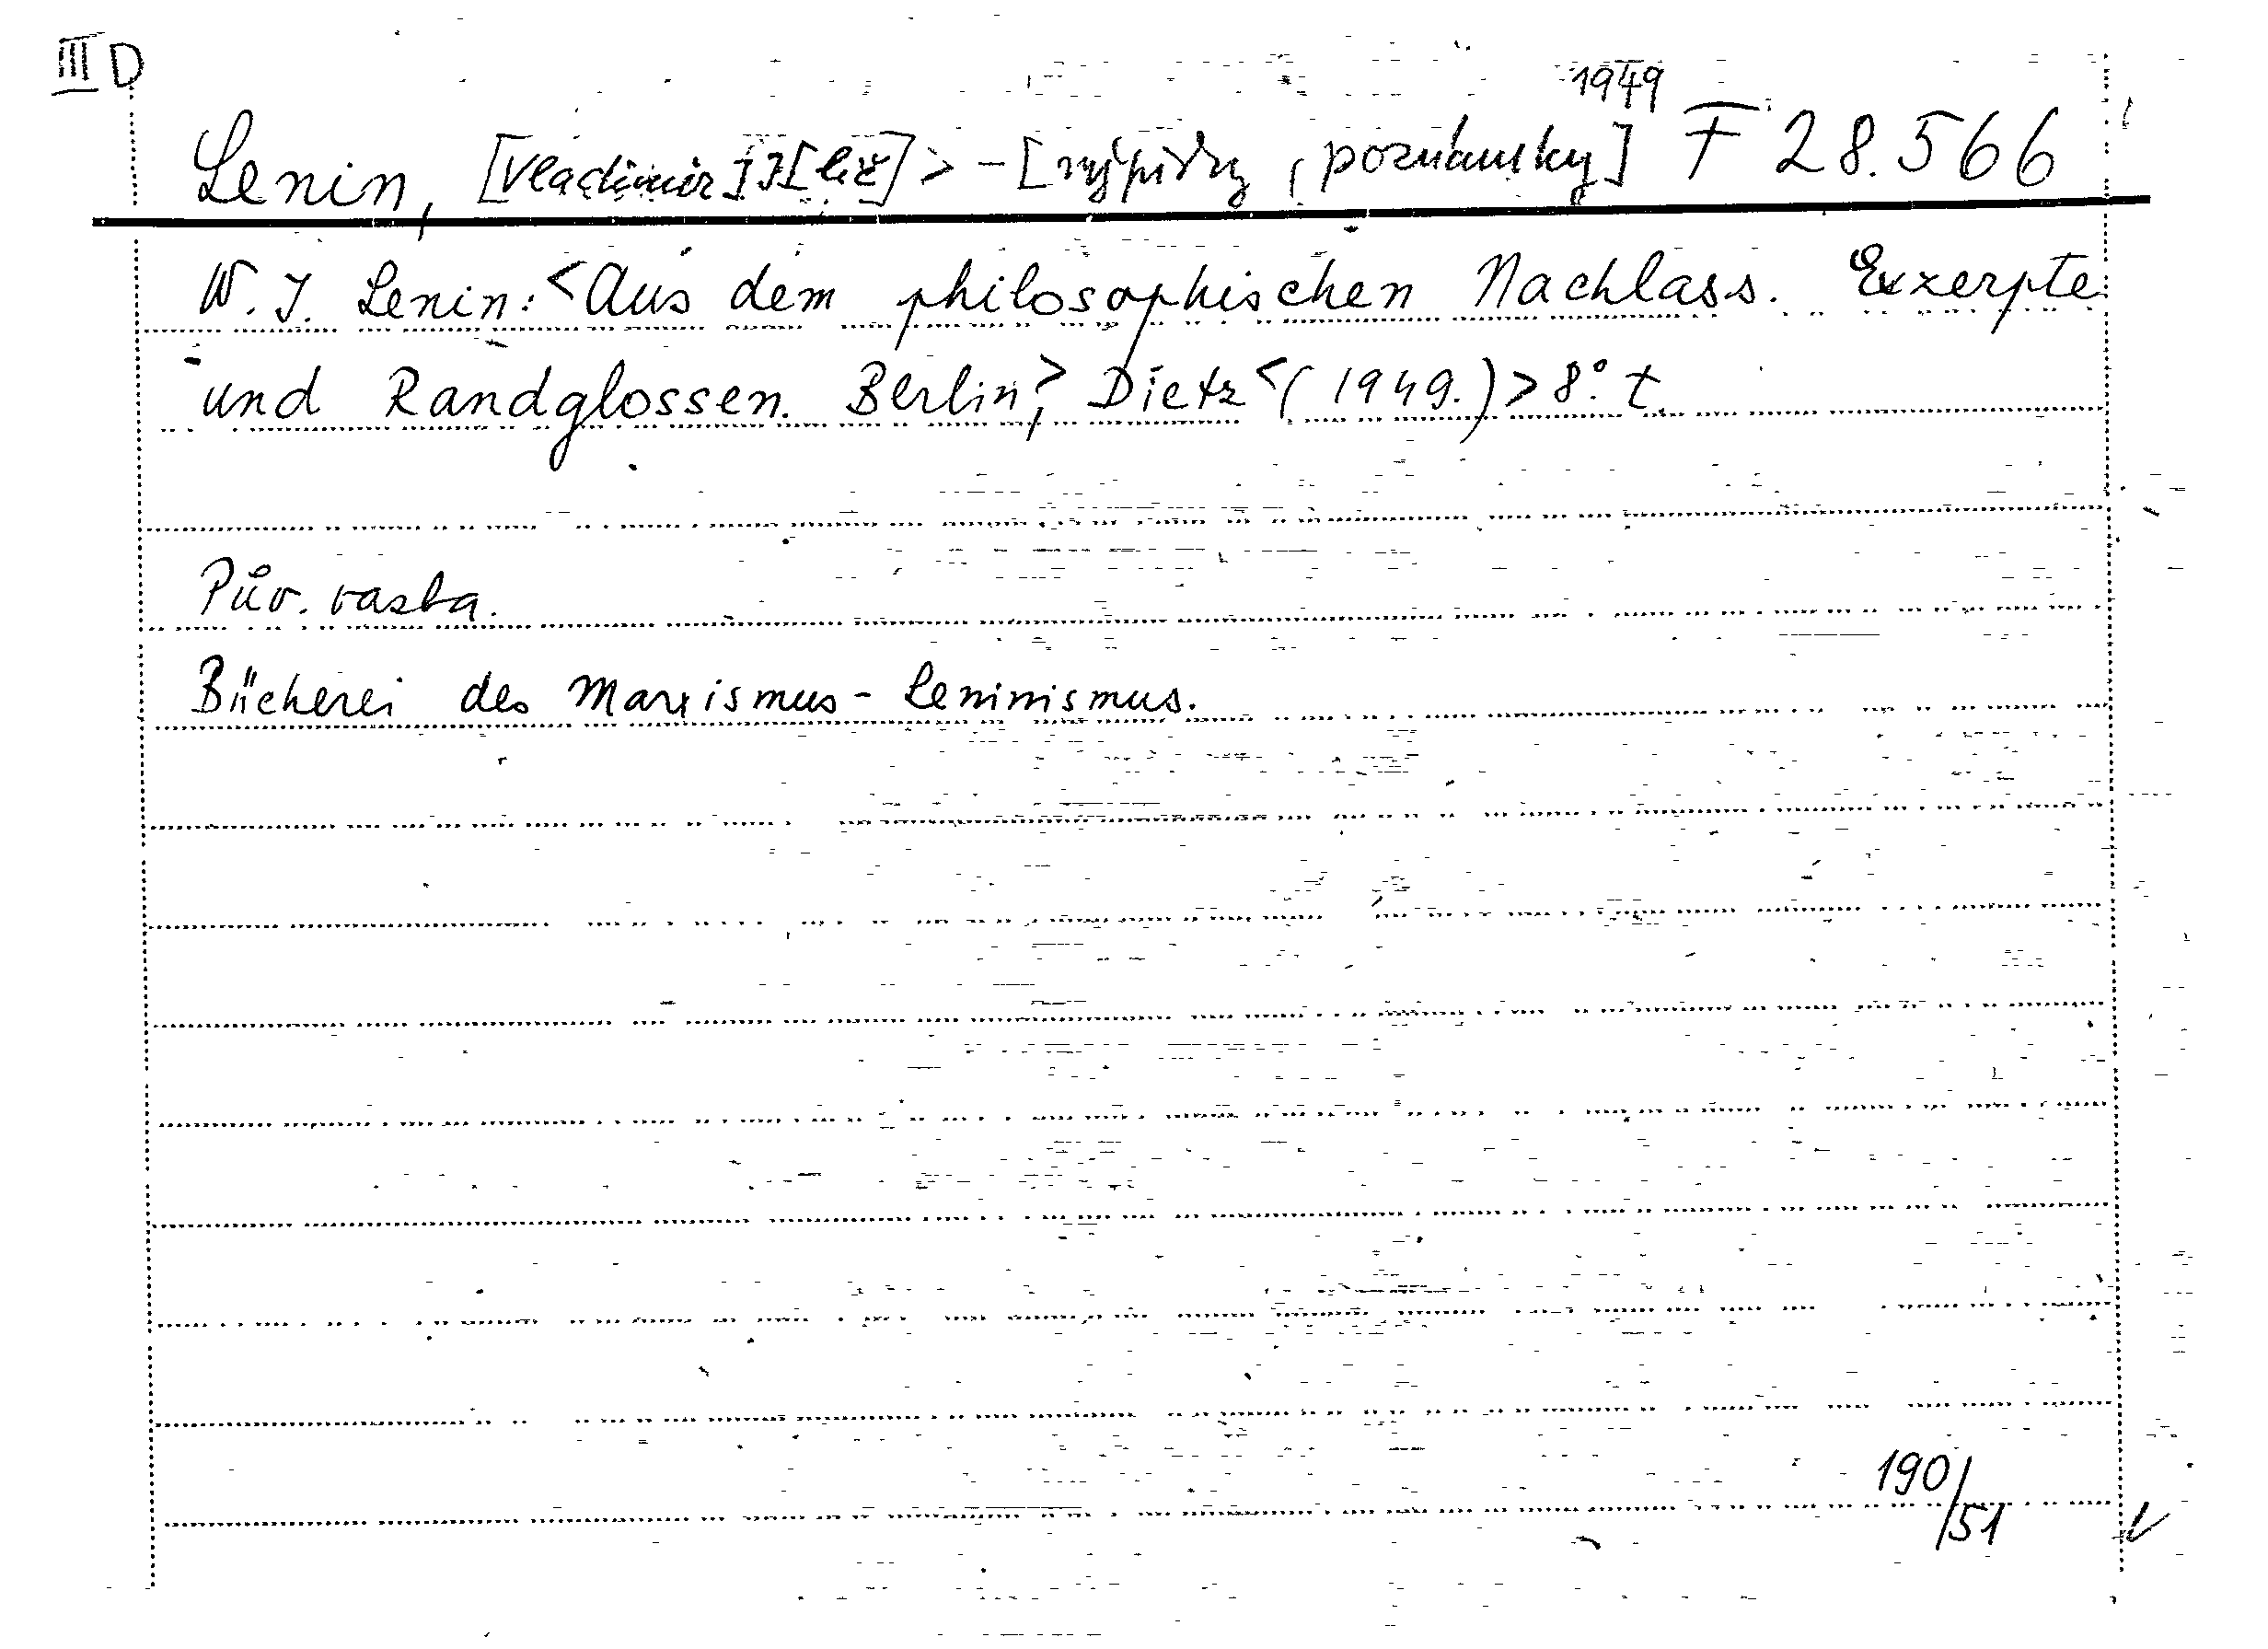 III D
1949
Lenin, [Vladimir] I[lič]> - [výpisky, poznámky] F 28.566
W. I. Lenin: <Aus dem philosophischen Nachlass. Exzerpte
und Randglossen. Berlin,> Dietz <(1949.)> 8° t.
Pův. vazba.
Bücherei des Marxismus-Leninismus.
190/51